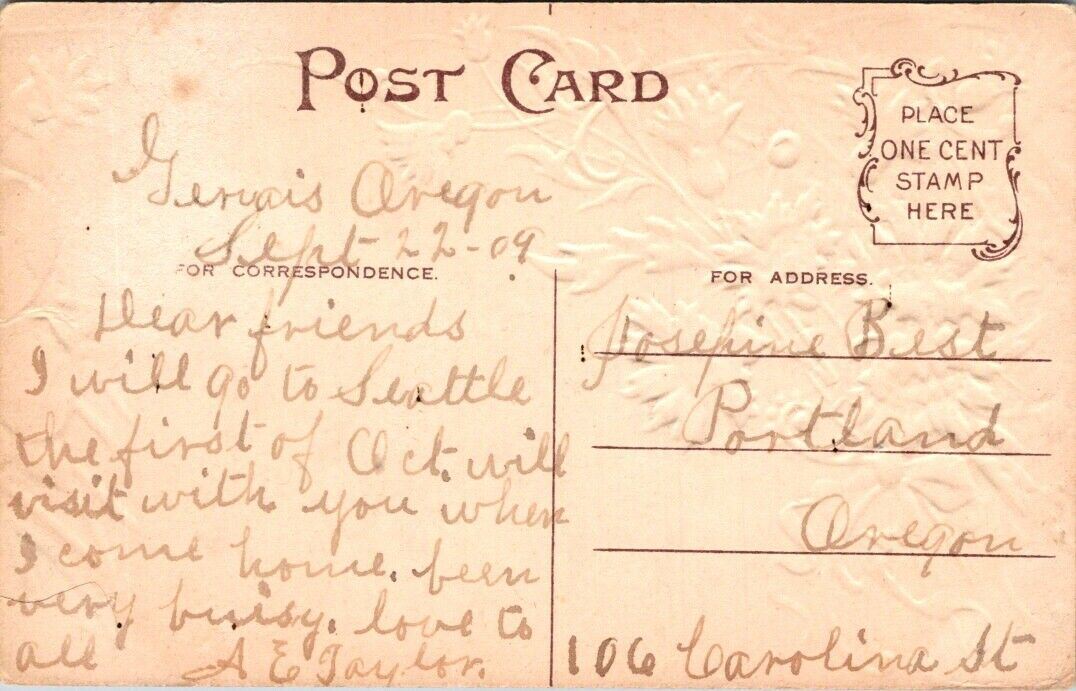 POST CARD
PLACE
ONE CENT
STAMP
HERE
Gervais Oregon
Sept 22-09
FOR CORRESPONDENCE.
Dear friends
I will go to Seattle
the first of Oct. will
visit with you when
I come home. been
very buisy. love to
all A E Taylor.
FOR ADDRESS.
Josepine Best
Portland
Oregon
106 Carolina St